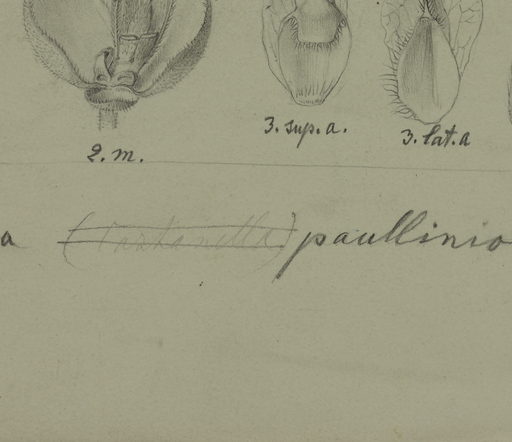 3. sup. a.
3. lat. a
2. m.
a (Castanella) paullinio